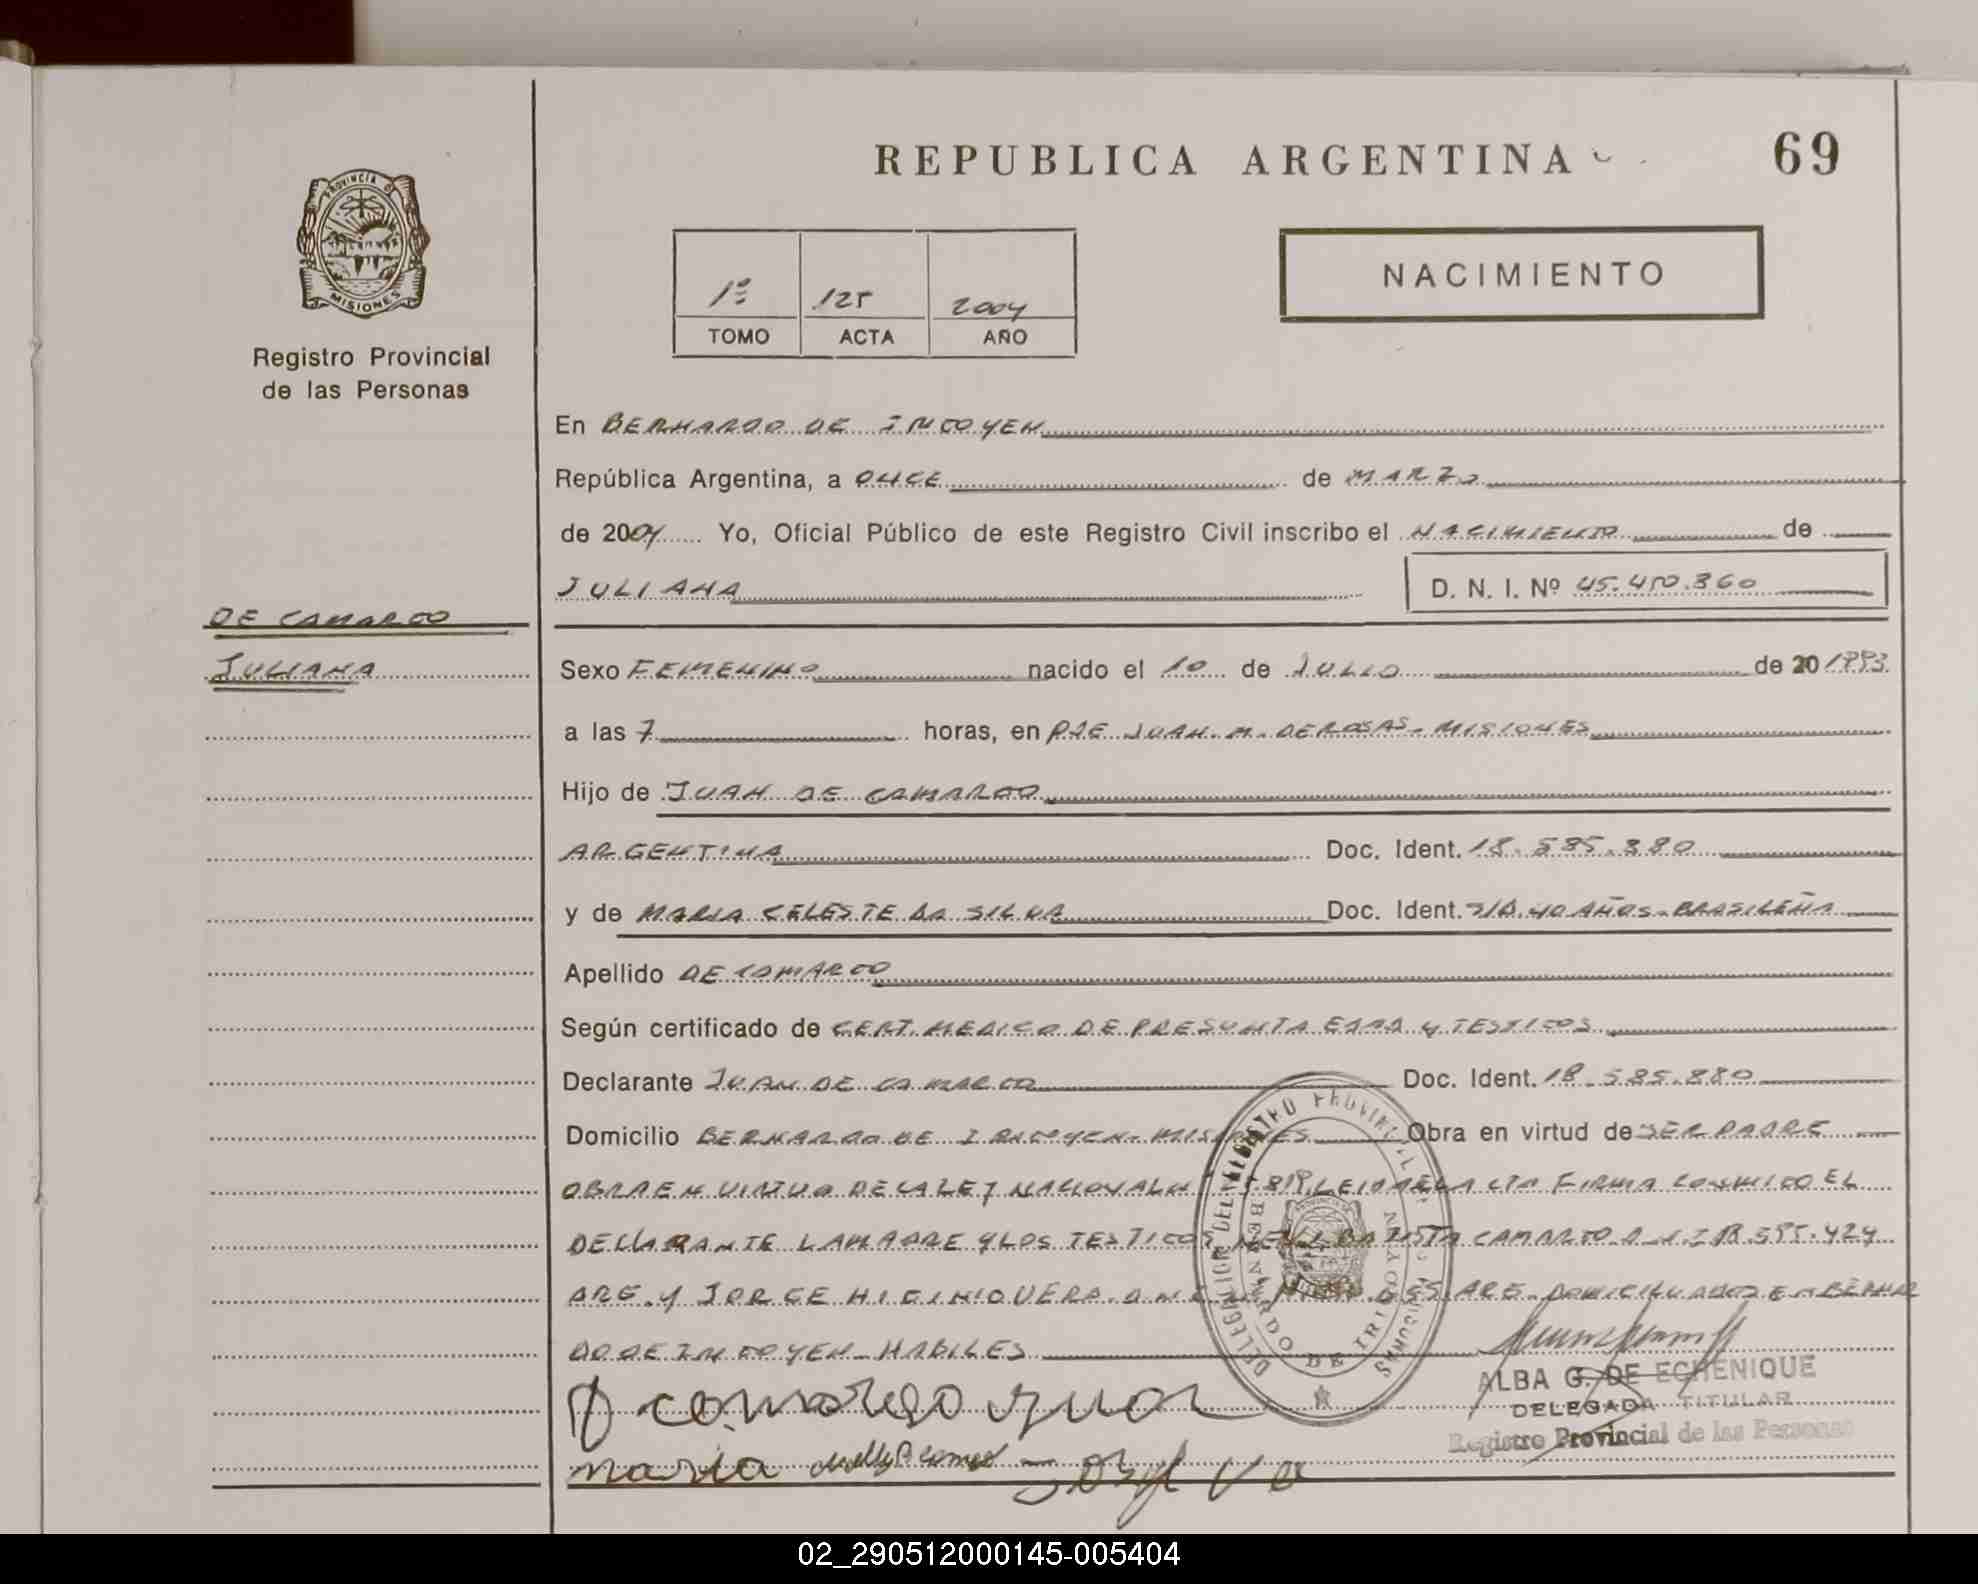 REPUBLICA ARGENTINA
69
PROVINCIA D
MISIONES
Registro Provincial
de las Personas
1º 125 2004
TOMO ACTA AÑO
NACIMIENTO
En BERNARDO DE IRIGOYEN
República Argentina, a ONCE de MARZO
de 2004 Yo, Oficial Público de este Registro Civil inscribo el NACIMIENTO de
JULIANA D. N. I. Nº 45.410.360
DE CAMARGO
JULIANA
Sexo FEMENINO nacido el 10 de JULIO de 20 1993
a las 7 horas, en PJE JUAN. M. DE ROSAS - MISIONES
Hijo de JUAN DE CAMARGO
ARGENTINA Doc. Ident. 18.585.880
y de MARIA CELESTE DA SILVA Doc. Ident. S/D. 40 AÑOS - BRASILEÑA
Apellido DE CAMARGO
Según certificado de CERT. MEDICO DE PRESUNTA EDAD Y TESTIGOS
Declarante JUAN DE CAMARGO Doc. Ident. 18.585.880
Domicilio BERNARDO DE IRIGOYEN - MISIONES Obra en virtud de SER PADRE
OBRA EN VIRTUD DE LA LEY NACIONAL Nº LEIDA EL ACTA FIRMA CONMIGO EL
DECLARANTE LA MADRE Y LOS TESTIGOS BATISTA CAMARGO D.N.I 18.595.424
ARG. Y JORGE HIGINIO VERA D.N.I ARG. DOMICILIADOS EN BERNAR
DO DE IRIGOYEN - HABILES
D camargo Juan
maria Nelly B camar Jorge Ve
DELEGACION DEL REGISTRO PROVINCIAL DE LAS PERSONAS
BERNARDO DE IRIGOYEN
MISIONES
ALBA G. DE ECHENIQUE
DELEGADA TITULAR
Registro Provincial de las Personas
02_290512000145-005404